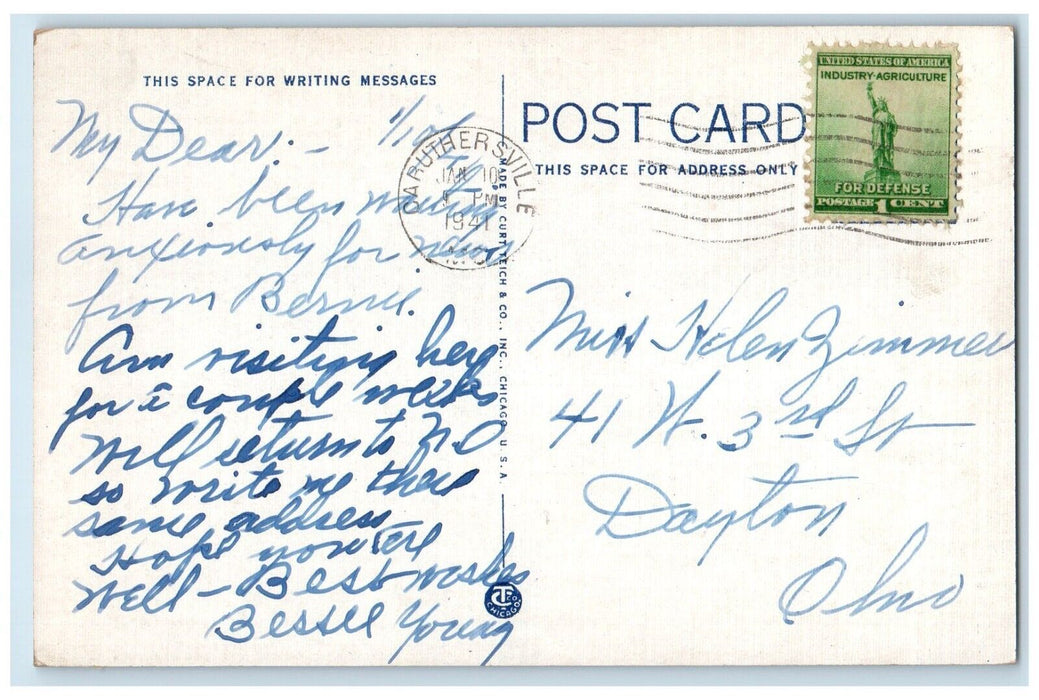 THIS SPACE FOR WRITING MESSAGES
My Dear: -
Have been waiting
anxiously for news
from Bernie.
Am visiting here
for a couple weeks
Will return to N O
so write me there
same address
Hope you're
Well - Best wishes
Bessee Young
CARUTHERSVILLE
JAN 10
5 PM
1941
MO.
MADE BY CURT TEICH & CO., INC., CHICAGO, U.S.A.
CT CO
CHICAGO
POST CARD
THIS SPACE FOR ADDRESS ONLY
UNITED STATES OF AMERICA
INDUSTRY-AGRICULTURE
FOR DEFENSE
POSTAGE 1 CENT
Miss Helen Zimmer
41 W. 3rd St
Dayton
Ohio